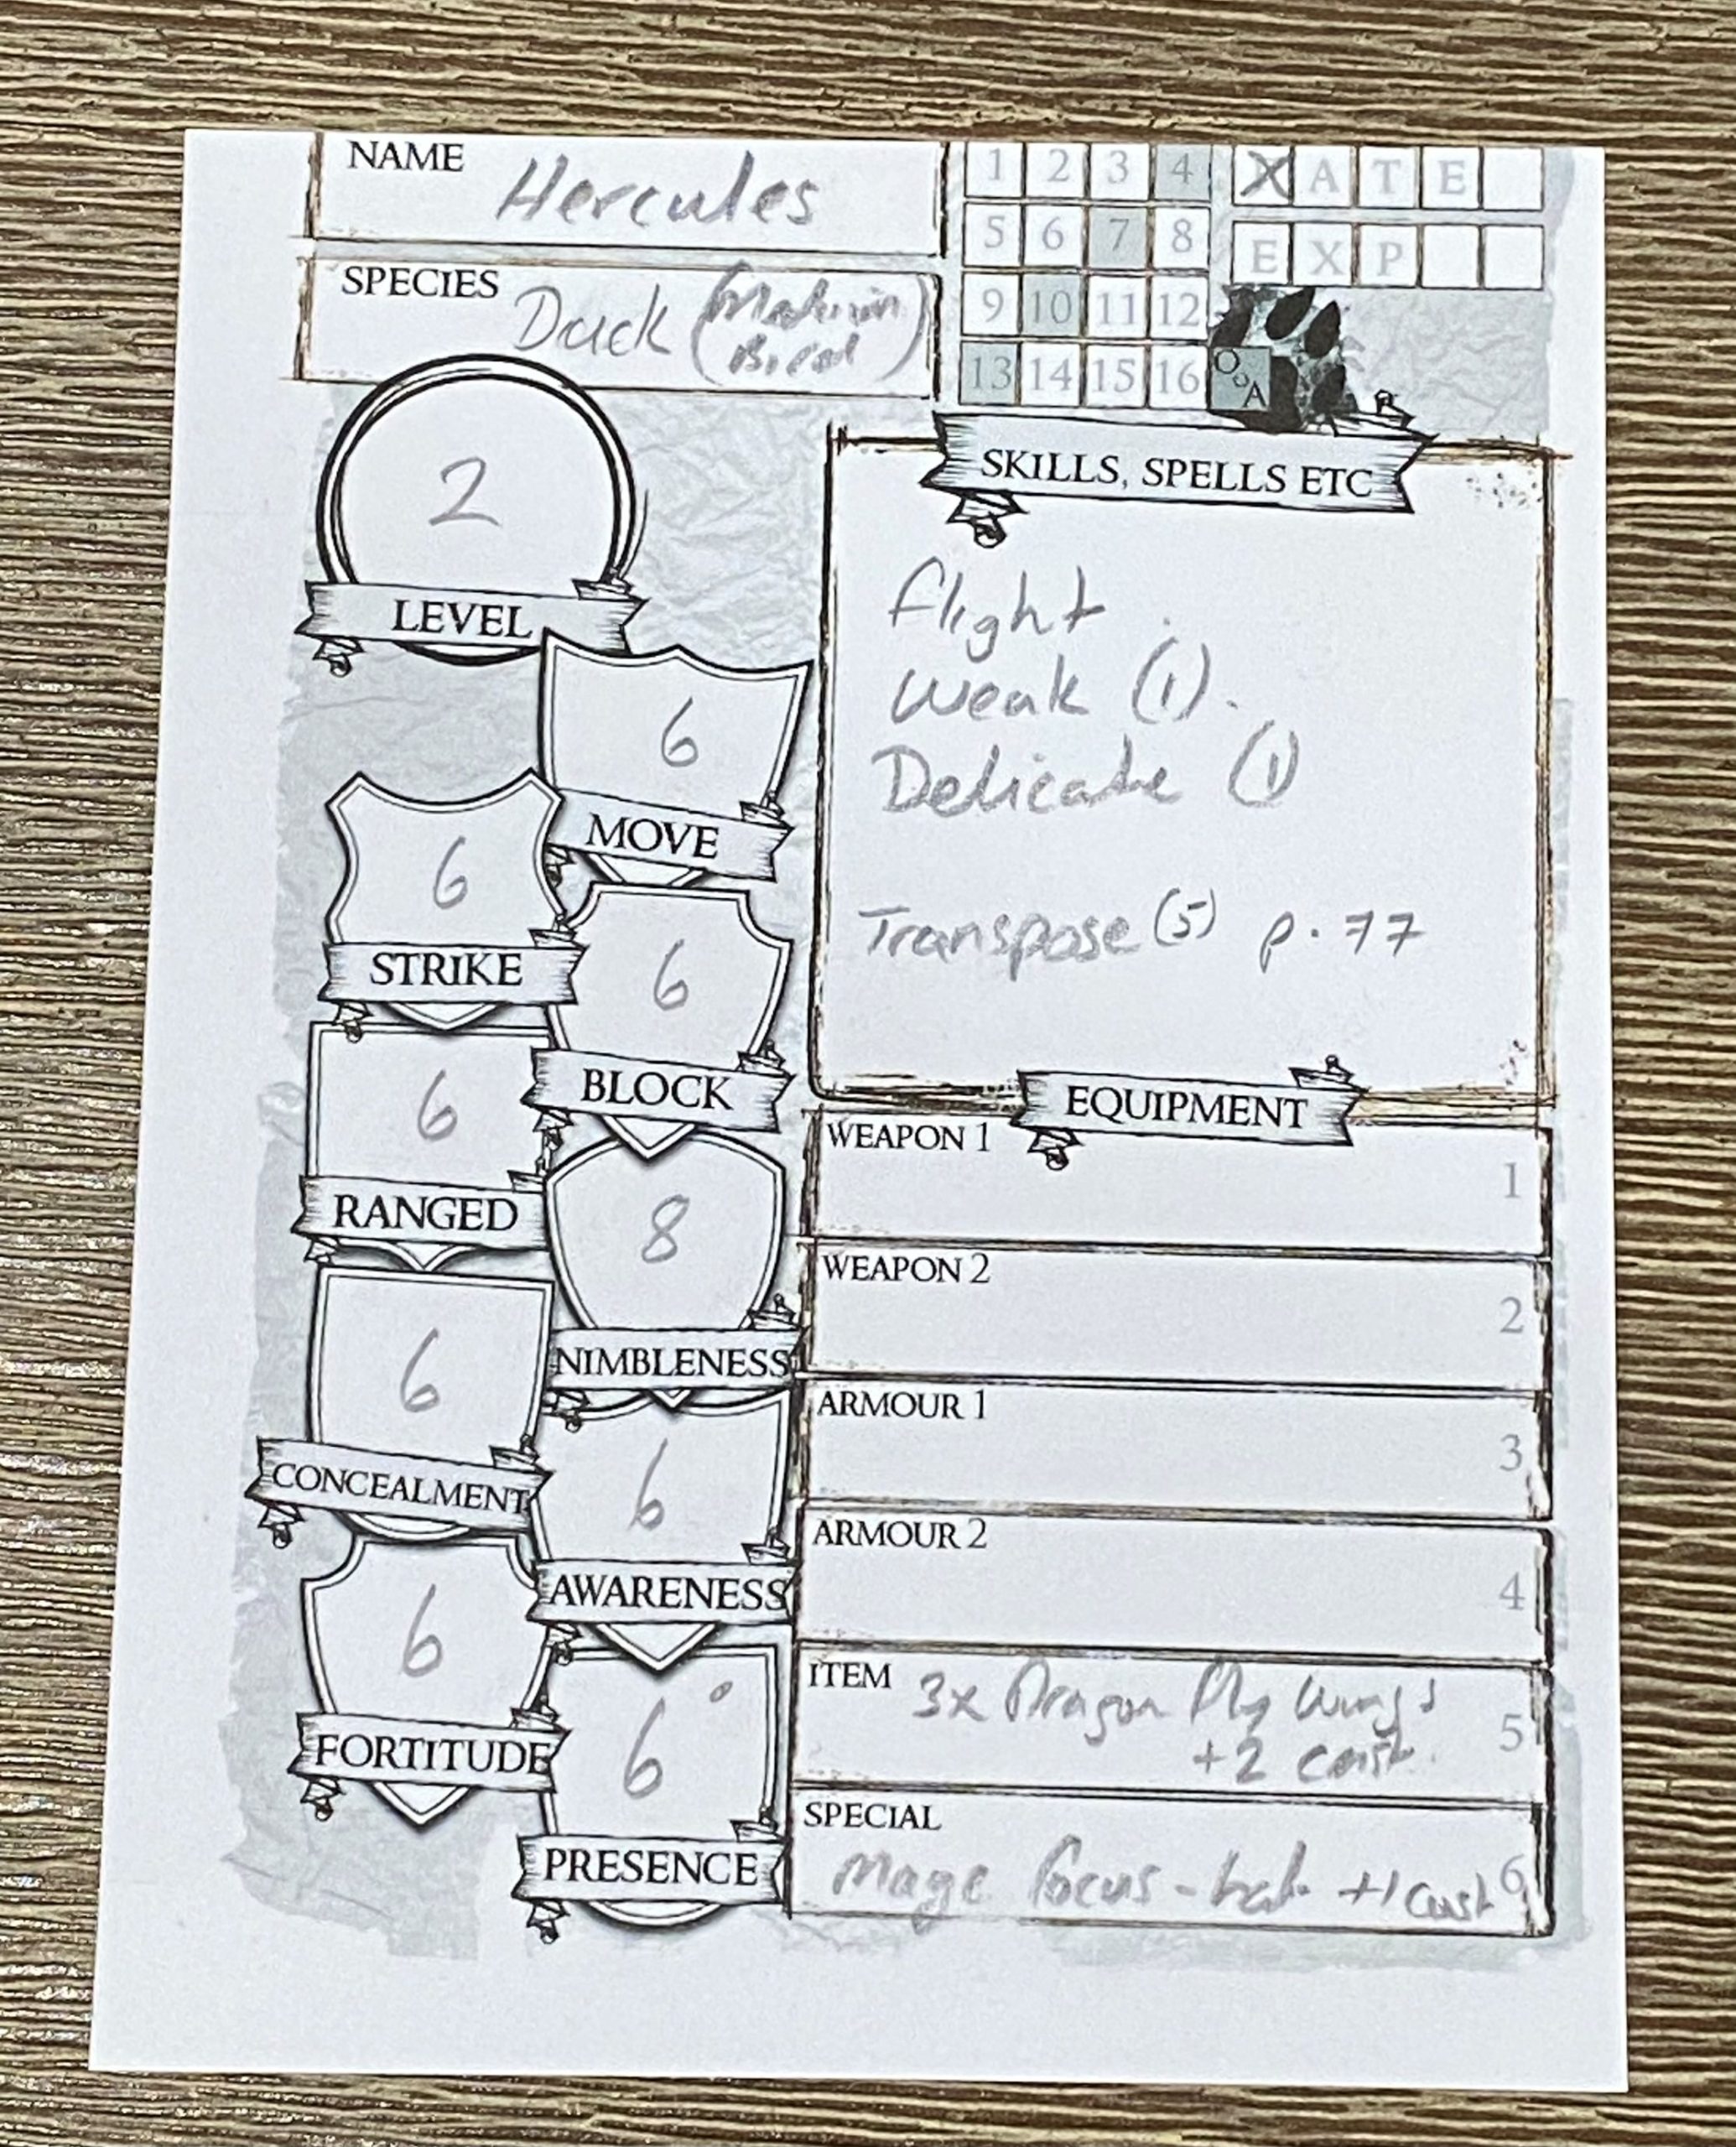 NAME Hercules
SPECIES Duck (Medium
Bird)
1 2 3 4
5 6 7 8
9 10 11 12
13 14 15 16
A T E
E X P
OoA
2
LEVEL
6
MOVE
6
STRIKE
6
BLOCK
6
RANGED
8
NIMBLENESS
6
CONCEALMENT
6
AWARENESS
6
FORTITUDE
6
PRESENCE
SKILLS, SPELLS ETC
Flight
Weak (1).
Delicate (1)
Transpose (5) p. 77
EQUIPMENT
WEAPON 1 1
WEAPON 2 2
ARMOUR 1 3
ARMOUR 2 4
ITEM 3x Dragon Fly Wings 5
+2 cast.
SPECIAL 6
Mage Focus - hat. +1 cast